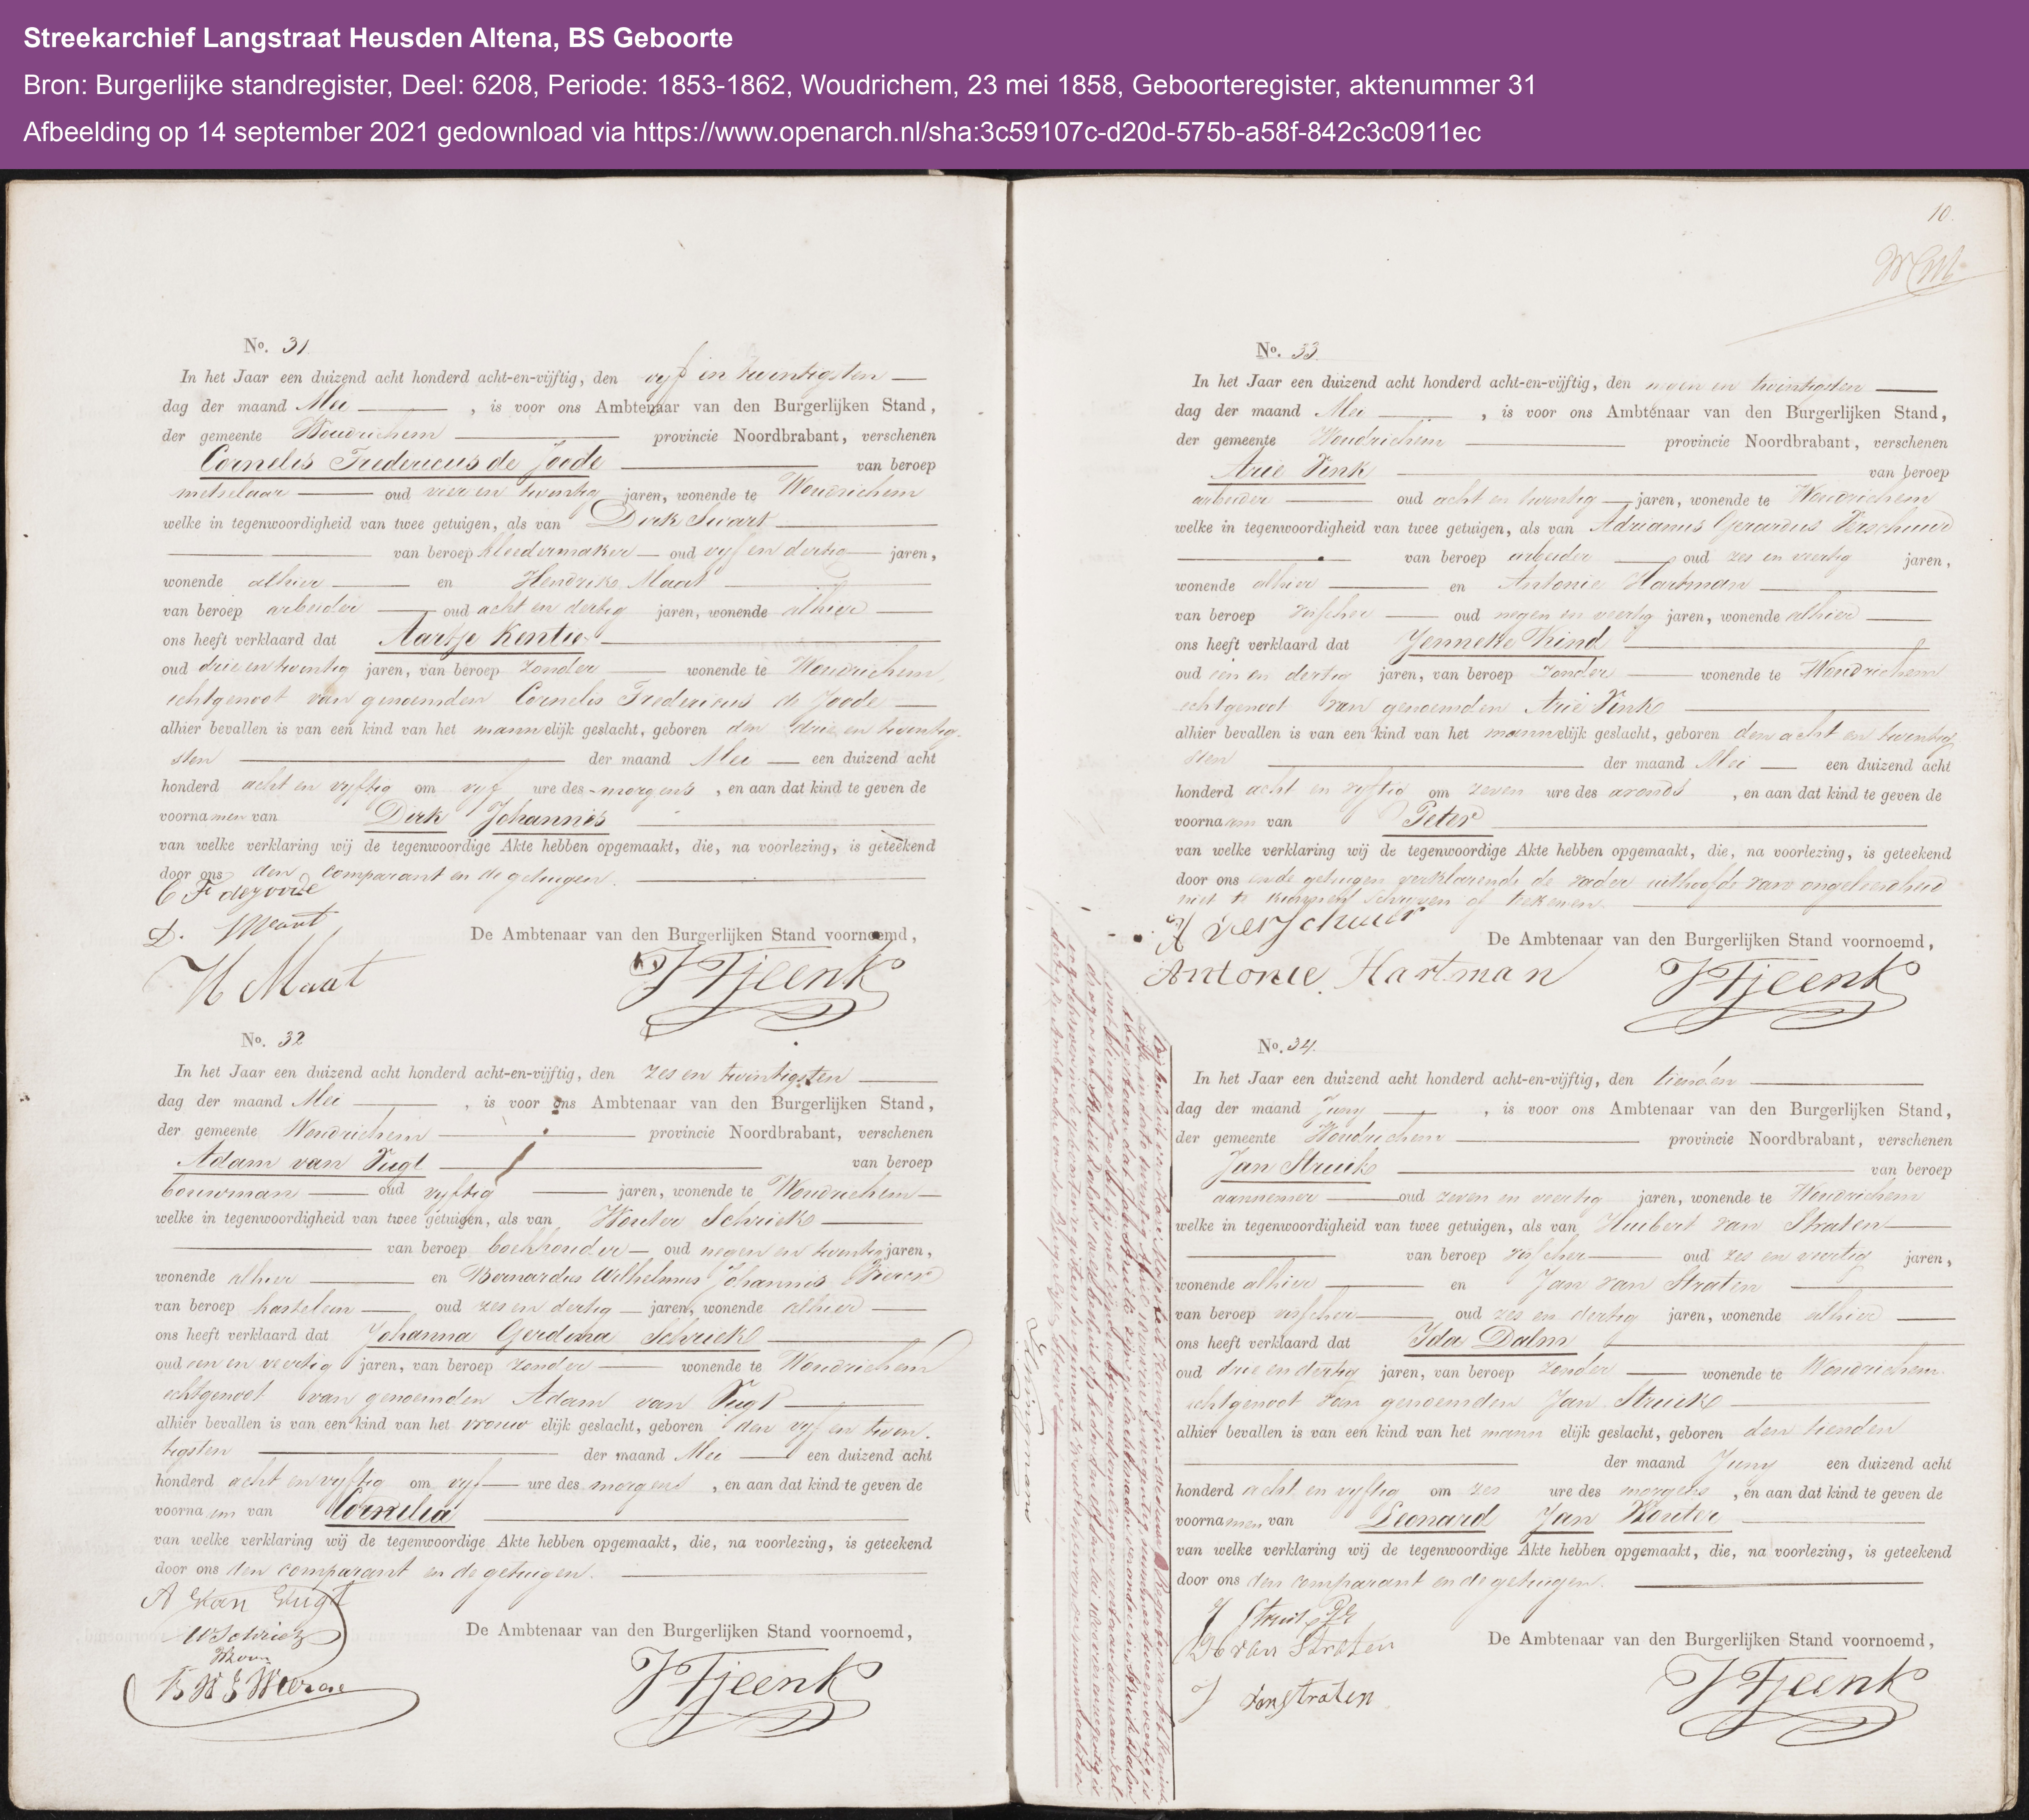 Streekarchief Langstraat Heusden Altena, BS Geboorte
Bron: Burgerlijke standregister, Deel: 6208, Periode: 1853-1862, Woudrichem, 23 mei 1858, Geboorteregister, aktenummer 31
Afbeelding op 14 september 2021 gedownload via https://www.openarch.nl/sha:3c59107c-d20d-575b-a58f-842c3c0911ec
No. 31
In het Jaar een duizend acht honderd acht-en-vijftig, den vyf en twintigsten
dag der maand Mei , is voor ons Ambtenaar van den Burgerlijken Stand,
der gemeente Woudrichem provincie Noordbrabant, verschenen
Cornelis Fredericus de Joode van beroep
metselaar oud vier en twintig jaren, wonende te Woudrichem
welke in tegenwoordigheid van twee getuigen, als van Dirk Swart
van beroep kleedermaker oud vyf en dertig jaren,
wonende alhier en Hendrik Maat
van beroep arbeider oud acht en dertig jaren, wonende alhier
ons heeft verklaard dat Aartje Kentie
oud drie en twintig jaren, van beroep zonder wonende te Woudrichem,
echtgenoot van genoemden Cornelis Fredericus de Joode
alhier bevallen is van een kind van het mannelijk geslacht, geboren den drie en twintig-
sten der maand Mei een duizend acht
honderd acht en vyftig om vyf ure des morgens , en aan dat kind te geven de
voornamen van Dirk Johannis
van welke verklaring wij de tegenwoordige Akte hebben opgemaakt, die, na voorlezing, is geteekend
door ons den comparant en de getuigen.
C F de Joode
D. Swart
De Ambtenaar van den Burgerlijken Stand voornoemd,
H Maat
J Tjeenk
No. 32
In het Jaar een duizend acht honderd acht-en-vijftig, den zes en twintigsten
dag der maand Mei , is voor ons Ambtenaar van den Burgerlijken Stand,
der gemeente Woudrichem provincie Noordbrabant, verschenen
Adam van Vugt van beroep
bouwman oud vyftig jaren, wonende te Woudrichem
welke in tegenwoordigheid van twee getuigen, als van Wouter Schriek
van beroep boekhouder oud negen en twintig jaren,
wonende alhier en Bernardus Wilhelmus Johannis
van beroep kastelein oud zes en dertig jaren, wonende alhier
ons heeft verklaard dat Johanna Gerdina Schriek
oud een en veertig jaren, van beroep zonder wonende te Woudrichem
echtgenoot van genoemden Adam van Vugt
alhier bevallen is van een kind van het vrouwelijk geslacht, geboren den vyf en twin-
tigsten der maand Mei een duizend acht
honderd acht en vyftig om vyf ure des morgens , en aan dat kind te geven de
voornaam van Cornelia
van welke verklaring wij de tegenwoordige Akte hebben opgemaakt, die, na voorlezing, is geteekend
door ons den comparant en de getuigen.
A van Vugt
W Schriek
De Ambtenaar van den Burgerlijken Stand voornoemd,
J Tjeenk
10.
No. 33
In het Jaar een duizend acht honderd acht-en-vijftig, den negen en twintigsten
dag der maand Mei , is voor ons Ambtenaar van den Burgerlijken Stand,
der gemeente Woudrichem provincie Noordbrabant, verschenen
Arie Vink van beroep
arbeider oud acht en twintig jaren, wonende te Woudrichem
welke in tegenwoordigheid van twee getuigen, als van Adrianus Gerardus Verschuur
van beroep arbeider oud zes en veertig jaren,
wonende alhier en Antonie Hartman
van beroep visscher oud negen en veertig jaren, wonende alhier
ons heeft verklaard dat Jenneke Kind
oud een en dertig jaren, van beroep zonder wonende te Woudrichem
echtgenoot van genoemden Arie Vink
alhier bevallen is van een kind van het mannelijk geslacht, geboren den acht en twintig
sten der maand Mei een duizend acht
honderd acht en vyftig om zeven ure des avonds , en aan dat kind te geven de
voornaam van Peter
van welke verklaring wij de tegenwoordige Akte hebben opgemaakt, die, na voorlezing, is geteekend
door ons en de getuigen verklarende de vader uithoofde van ongeleerdheid
niet te kunnen schryven of teekenen.
Verschuur
De Ambtenaar van den Burgerlijken Stand voornoemd,
Antonie Hartman
J Tjeenk
No. 34.
In het Jaar een duizend acht honderd acht-en-vijftig, den tienden
dag der maand Juny , is voor ons Ambtenaar van den Burgerlijken Stand,
der gemeente Woudrichem provincie Noordbrabant, verschenen
Jan Struik van beroep
aannemer oud zeven en veertig jaren, wonende te Woudrichem
welke in tegenwoordigheid van twee getuigen, als van Huibert van Straten
van beroep visscher oud zes en veertig jaren,
wonende alhier en Jan van Straten
van beroep visscher oud zes en dertig jaren, wonende alhier
ons heeft verklaard dat Ida Dalm
oud drie en dertig jaren, van beroep zonder wonende te Woudrichem.
echtgenoot van genoemden Jan Struik
alhier bevallen is van een kind van het mannelijk geslacht, geboren den tienden
der maand Juny een duizend acht
honderd acht en vyftig om zes ure des morgens , en aan dat kind te geven de
voornamen van Leonard Jan Wouter
van welke verklaring wij de tegenwoordige Akte hebben opgemaakt, die, na voorlezing, is geteekend
door ons den comparant en de getuigen.
J Struik
H van Straten
De Ambtenaar van den Burgerlijken Stand voornoemd,
J van Straten
J Tjeenk